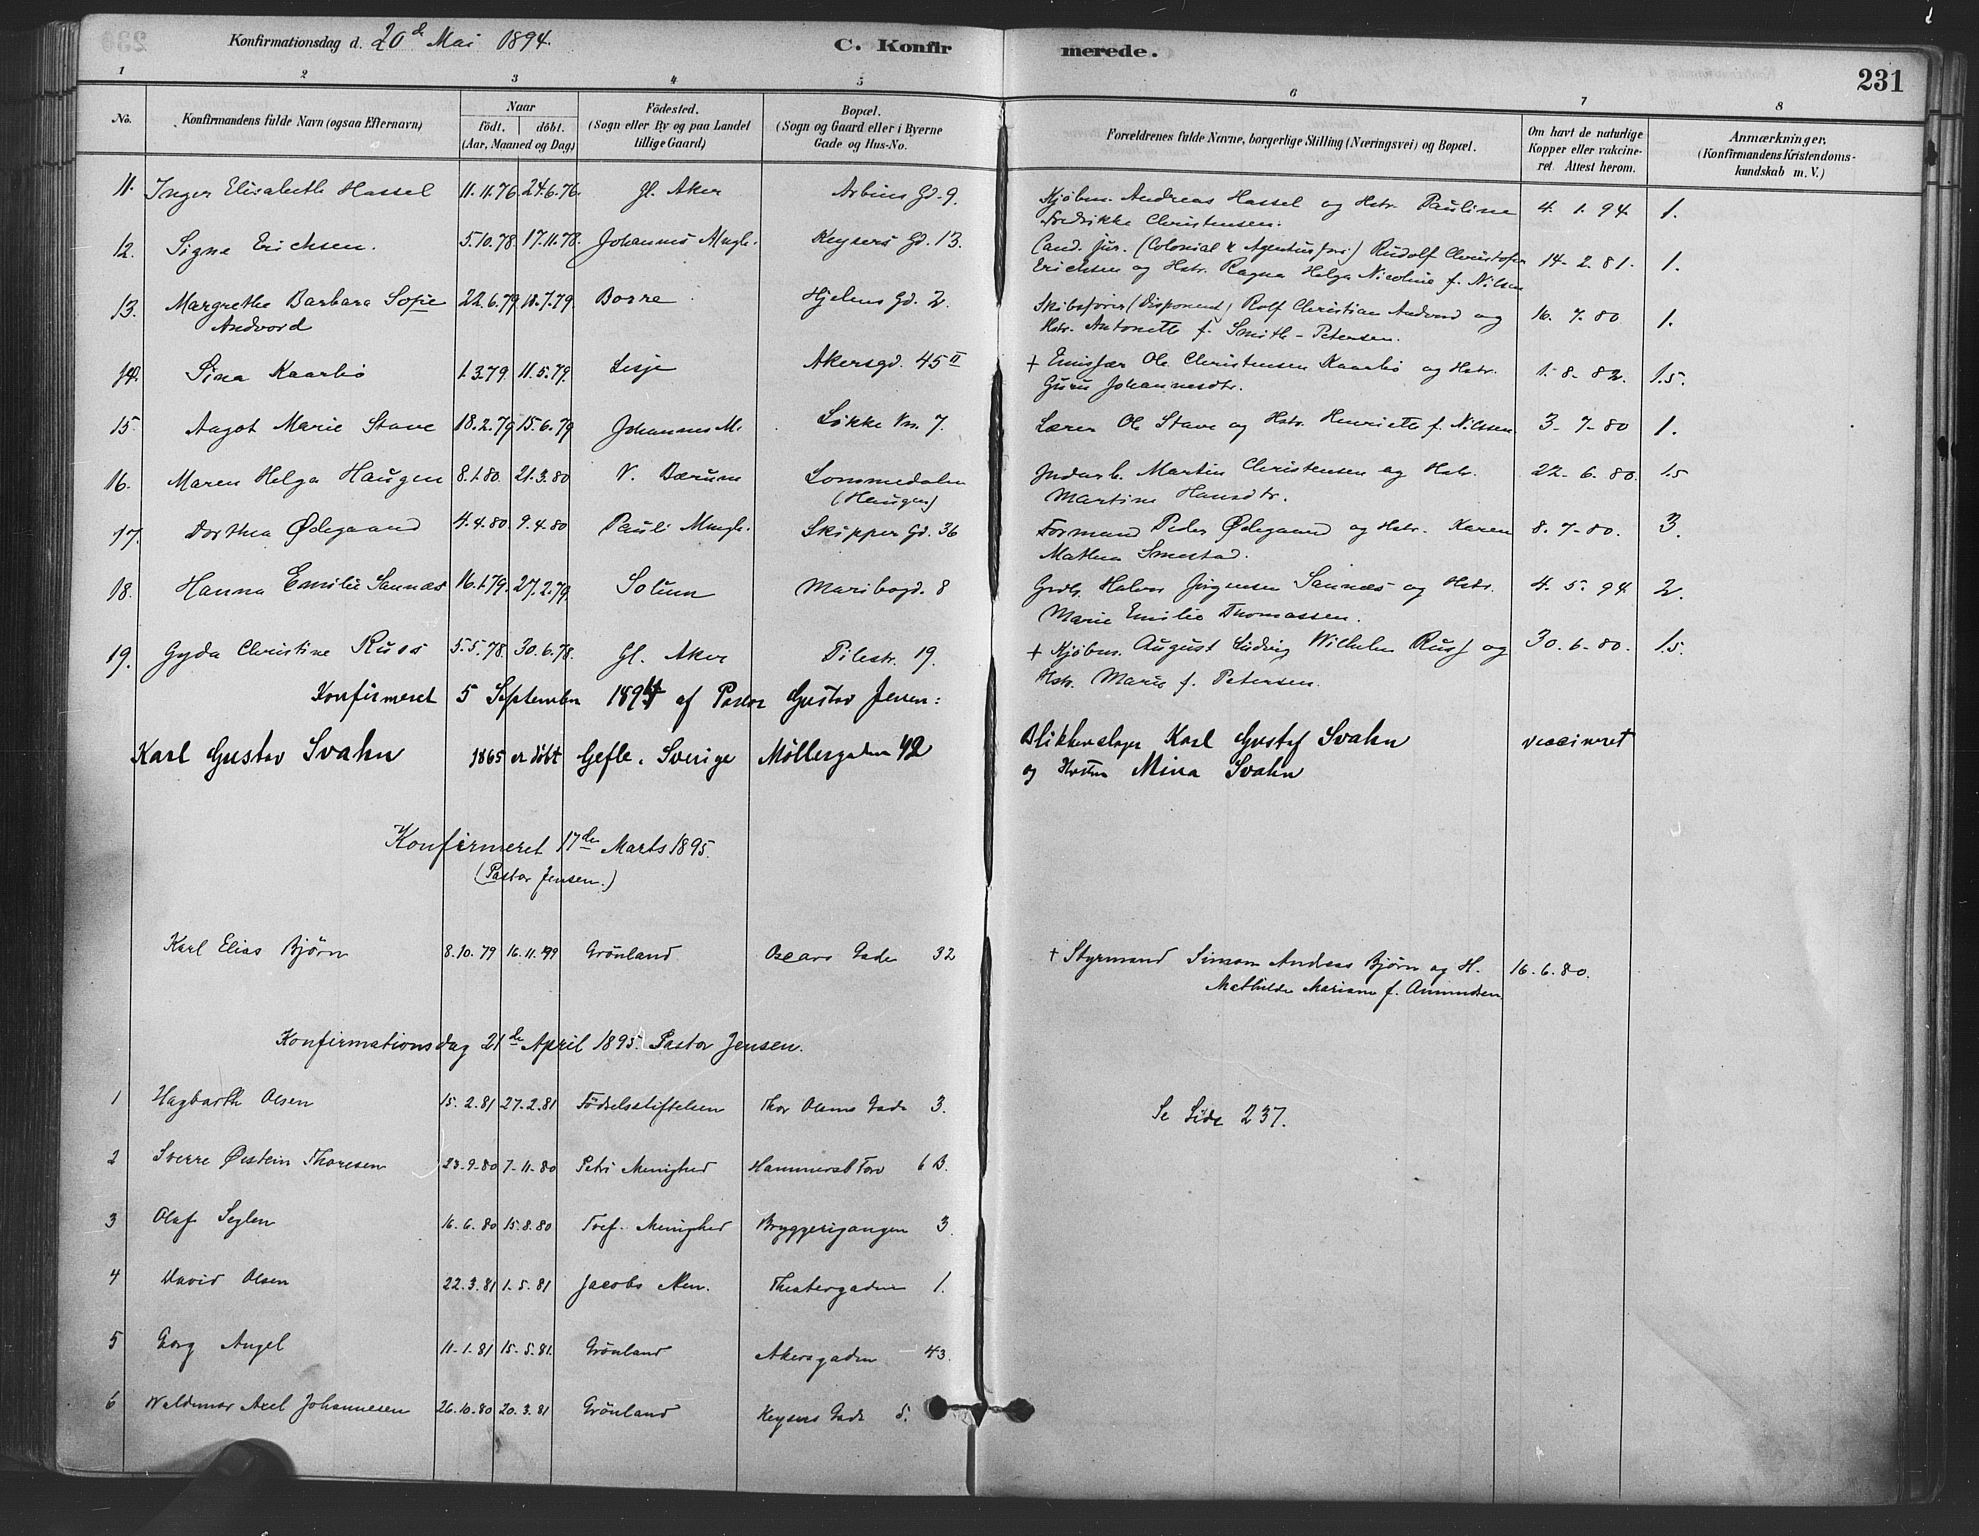 Konfirmationsdag d. 20d Mai 1894.
C. Konfirmerede.
231
1 2 3 4 5 6 7 8
No.
Konfirmandens fulde Navn (ogsaa Efternavn)
Naar
födt. döbt.
(Aar, Maaned og Dag)
Födested.
(Sogn eller By og paa Landet
tillige Gaard)
Bopæl.
(Sogn og Gaard eller i Byerne
Gade og Hus-No.
Forældrenes fulde Navne, borgerlige Stilling (Næringsvei) og Bopæl.
Om havt de naturlige
Kopper eller vakcine-
ret. Attest herom.
Anmærkninger,
(Konfirmandens Kristendoms-
kundskab m. V.)
11. Inger Elisabeth Hassel 11.11.76 24.6.76. Gl. Aker Arbins Gd. 9. Kjøbm. Andreas Hassel og Hstr. Pauline 4. 1. 94. 1.
Fredrikke Christensen.
12. Signe Erichsen. 5.10.78. 17.11.78. Johannes Mngh. Keysers Gd. 13. Cand. jur. (Colonial & Agentur) Rudolf Christofer 14. 2. 81. 1.
Erichsen og Hstr. Ragna Helga Nicoline f. Nilsen
13. Margrethe Barbara Sofie 22.6.79 18.7.79. Borre Hjelms Gd. 2. Skibsfører (Disponent) Rolf Christian Andvord og 16. 7. 80 1.
Andvord Hstr. Antonette f. Smith-Petersen.
14. Sina Kaarbø 1.3.79. 11.5.79. Lesje Akersgd. 45 II † Ole Christensen Kaarbø og Hstr. 1. 8. 82. 1.5.
Guru Johannesdtr.
15. Aagot Marie Stave 18.2.79 15.6.79 Johannes M. Løkke Vn. 7. Lærer Ole Stave og Hstr. Henriette f. Nilssen 3. 7. 80 1.
16. Maren Helga Haugen 8.1.80. 21.3.80 V. Bærum Lommedalen Martin Christensen og Hstr. 22. 6. 80. 1.5
(Haugen) Martine Hansdtr.
17. Dorthea Ødegaard 4.4.80. 9.4.80 Pauli Mngh. Skipper Gd. 36 Formand Peder Ødegaard og Hstr. Karen 8. 7. 80. 3.
Mathea Smestad.
18. Hanna Emilie Sannæs 16.1.79. 27.2.79. Solum Maribogd. 8 Grdb. Halvor Jørgensen Sannæs og Hstr. 4. 5. 94 2.
Marie Emilie Thomassen.
19. Gyda Christine Russ 5.5.78. 30.6.78. Gl. Aker Pilestr. 19. † Kjøbm. August Ludvig Wilhelm Russ og 30. 6. 80. 1.5.
Hstr. Marie f. Petersen.
Konfirmeret 5 September 1894 af Pastor Gustav Jensen:
Karl Gustav Svahn 1865 er döbt Gefle i Sverige Möllergaden 42 Blikkenslager Karl Gustaf Svahn vaccineret
og Hustru Mina Svahn
Konfirmeret 17de Marts 1895.
(Pastor Jensen.)
Karl Elias Bjørn 8.10.79 16.11.79 Grönland Oscars Gade 32 † Styrmand Simon Andreas Bjørn og H. 16. 6. 80.
Mathilde Mariane f. Amundsen
Konfirmationsdag 21de April 1895. Pastor Jensen.
1 Hagbarth Olsen 15.2.81 27.2.81 Födselsstiftelsen Thor Olsens Gade 3. Se Side 237.
2 Sverre Øistein Thoresen 23.9.80 7.11.80 Petri Menighed Hammersb Torv 6 B.
3 Olaf Seglen 16.6.80 15.8.80 Tref. Menighed Bryggerigangen 3
4 David Olsen 22.3.81 1.5.81 Jacobs Men. Theatergaden 1.
5 Georg Angel 11.1.81 15.5.81. Grönland Akersgaden 43.
6 Waldemar Axel Johannesen 26.10.80 20.3.81 Grönland Keysers Gade 5.